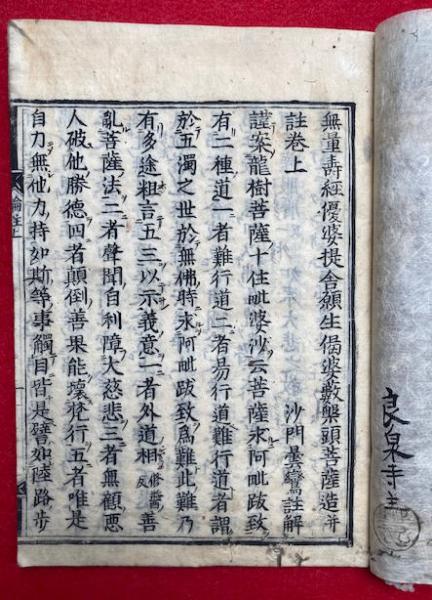 良泉寺
無量壽經優婆提舍願生偈婆藪槃頭菩薩造并
註卷上 沙門曇鸞註解
謹案龍樹菩薩十住毗婆沙云菩薩求阿毗跋致
有二種道一者難行道二者易行道難行道者謂
於五濁之世於無佛時求阿毗跋致爲難此難乃
有多途粗言五三以示義意一者外道相修醬反善
亂菩薩法二者聲聞自利障大慈悲三者無顧惡
人破他勝德四者顛倒善果能壞梵行五者唯是
自力無他力持如斯等事觸目皆是譬如陸路步
論註上